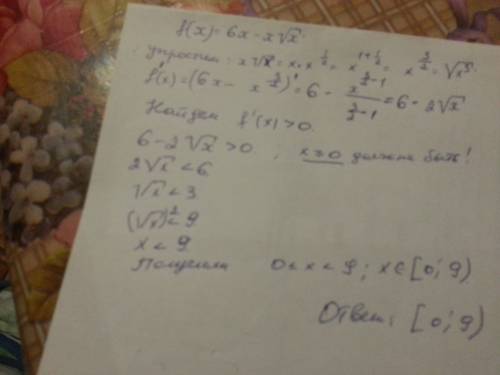 f(x)=6x-x√x
упростим: x√x = x·x^(1/2) = x^(1+1/2) = x^(3/2) = √x³.
f'(x)=(6x-x^(3/2))' = 6 - x^(3/2-1)/(3/2-1) = 6-2√x
Найдем f'(x)>0.
6-2√x>0, x≥0 должно быть!
2√x<6
√x<3
(√x)²<9
x<9
Получили 0<x<9; x∈[0;9)
Ответ: [0;9)